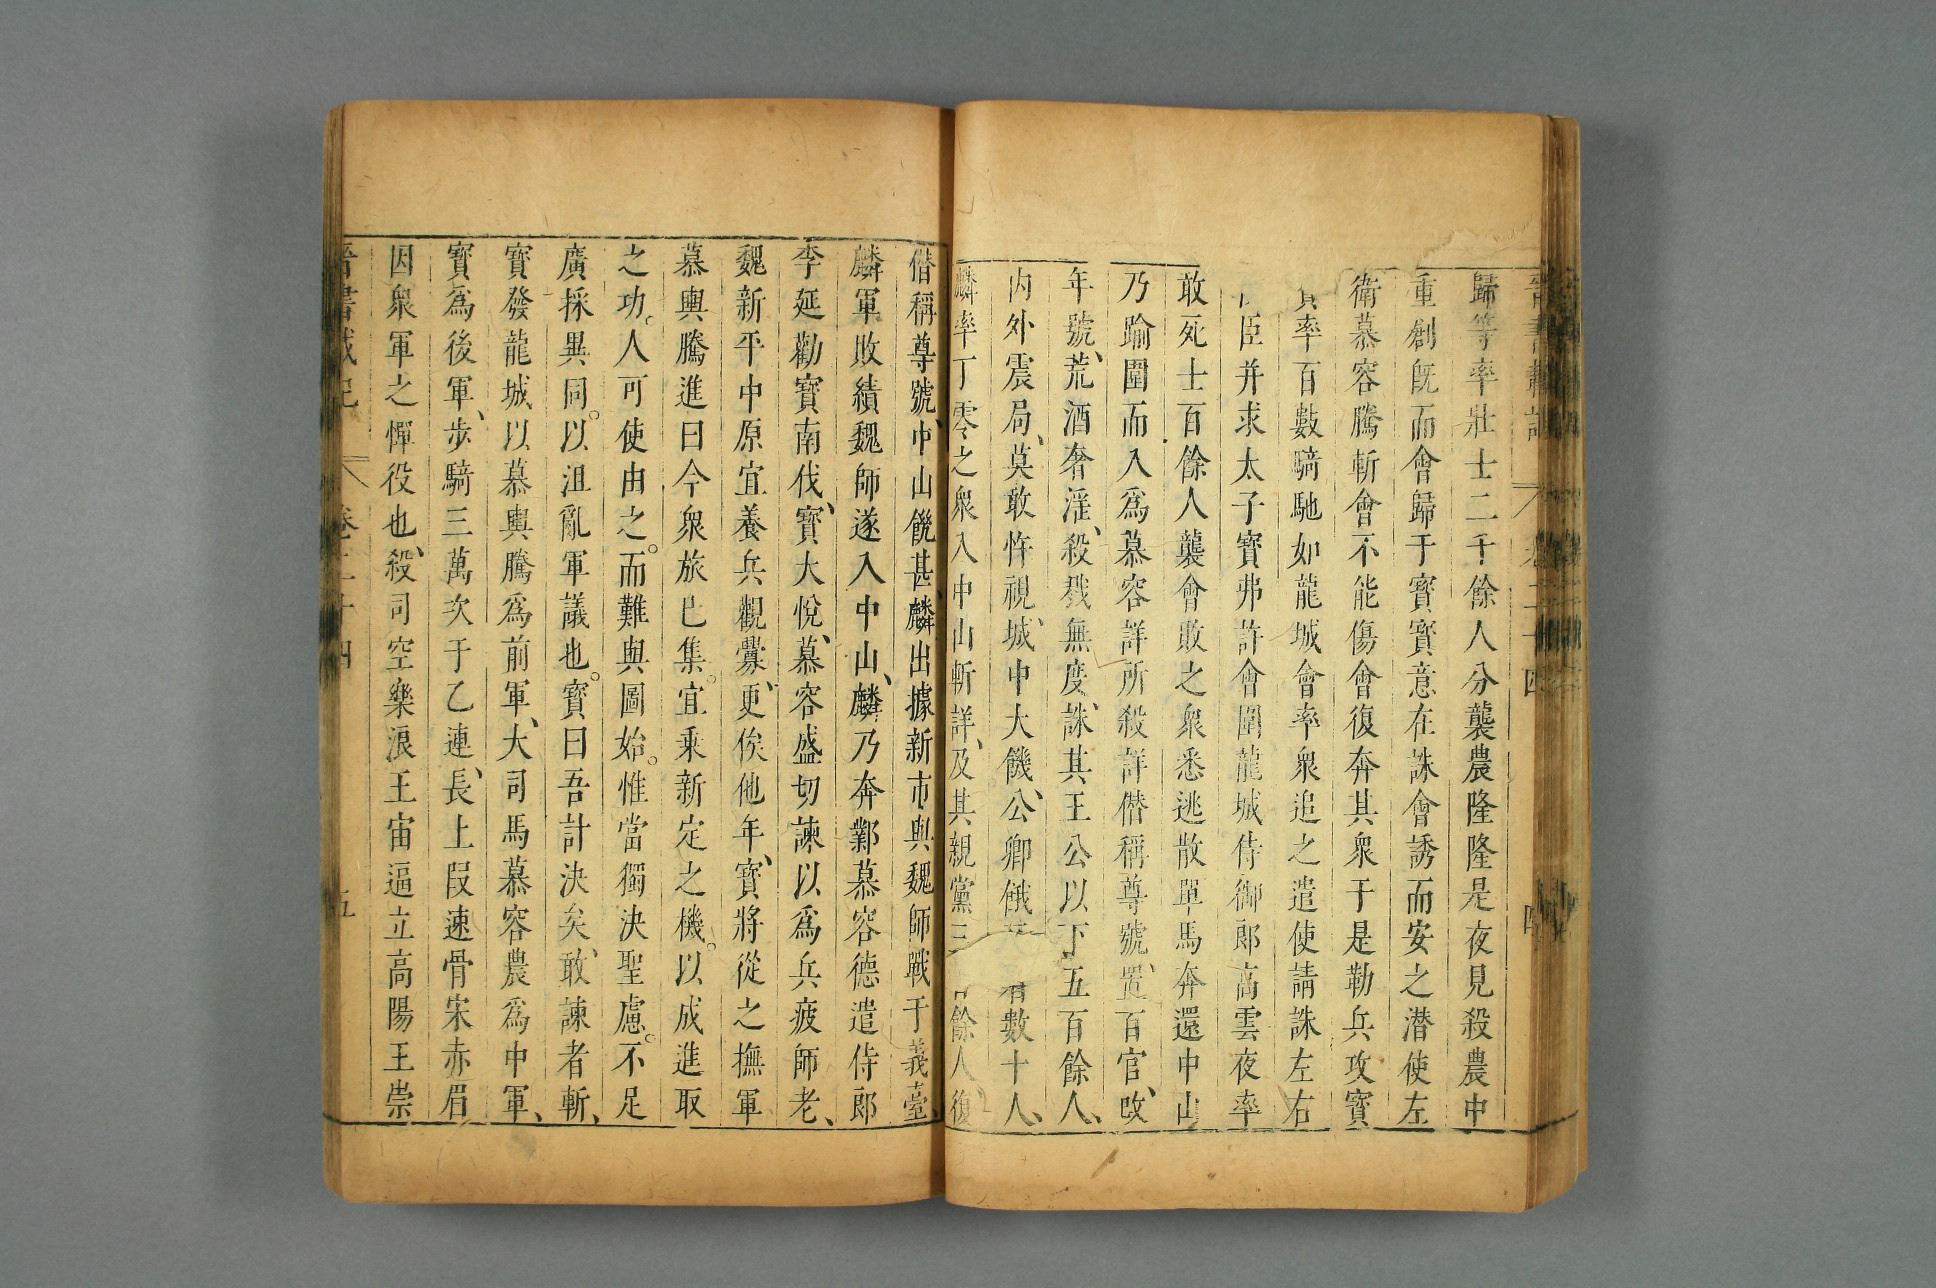 晉書載記 卷二十四 四
歸等率壯士二千餘人分襲農隆隆是夜見殺農中
重創旣而會歸于寳寳意在誅會誘而安之潜使左
衛慕容騰斬會不能傷會復奔其衆于是勒兵攻寳
寳率百數騎馳如龍城會率衆追之遣使請誅左右
臣并求太子寳弗許會圍龍城侍御郎高雲夜率
敢死士百餘人襲會敗之衆悉逃散單馬奔還中山
乃踰圍而入爲慕容詳所殺詳僣稱尊號、置百官、攺
年號、荒酒奢淫、殺戮無度、誅其王公以下五百餘人、
内外震局、莫敢忤視、城中大饑、公卿餓 者數十人、
麟率丁零之衆入中山斬詳、及其親黨三 餘人復
僣稱尊號、中山饑甚、麟出據新市與魏師戰于義臺、
麟軍敗績魏師遂入中山、麟乃奔鄴慕容德遣侍郎
李延勸寳南伐、寳大悅、慕容盛切諫以爲兵疲師老、
魏新平中原宜養兵觀釁、更俟他年、寳將從之撫軍
慕輿騰進曰今衆旅已集。宜乗新定之機。以成進取
之功。人可使由之。而難與圖始。惟當獨決聖慮。不足
廣採異同。以沮亂軍議也。寳曰吾計決矣、敢諫者斬、
寳發龍城以慕輿騰爲前軍、大司馬慕容農爲中軍、
寳爲後軍、步騎三萬次于乙連、長上叚速骨宋赤眉
因衆軍之憚役也、殺司空樂浪王宙逼立高陽王崇
晉書載記 卷二十四 五